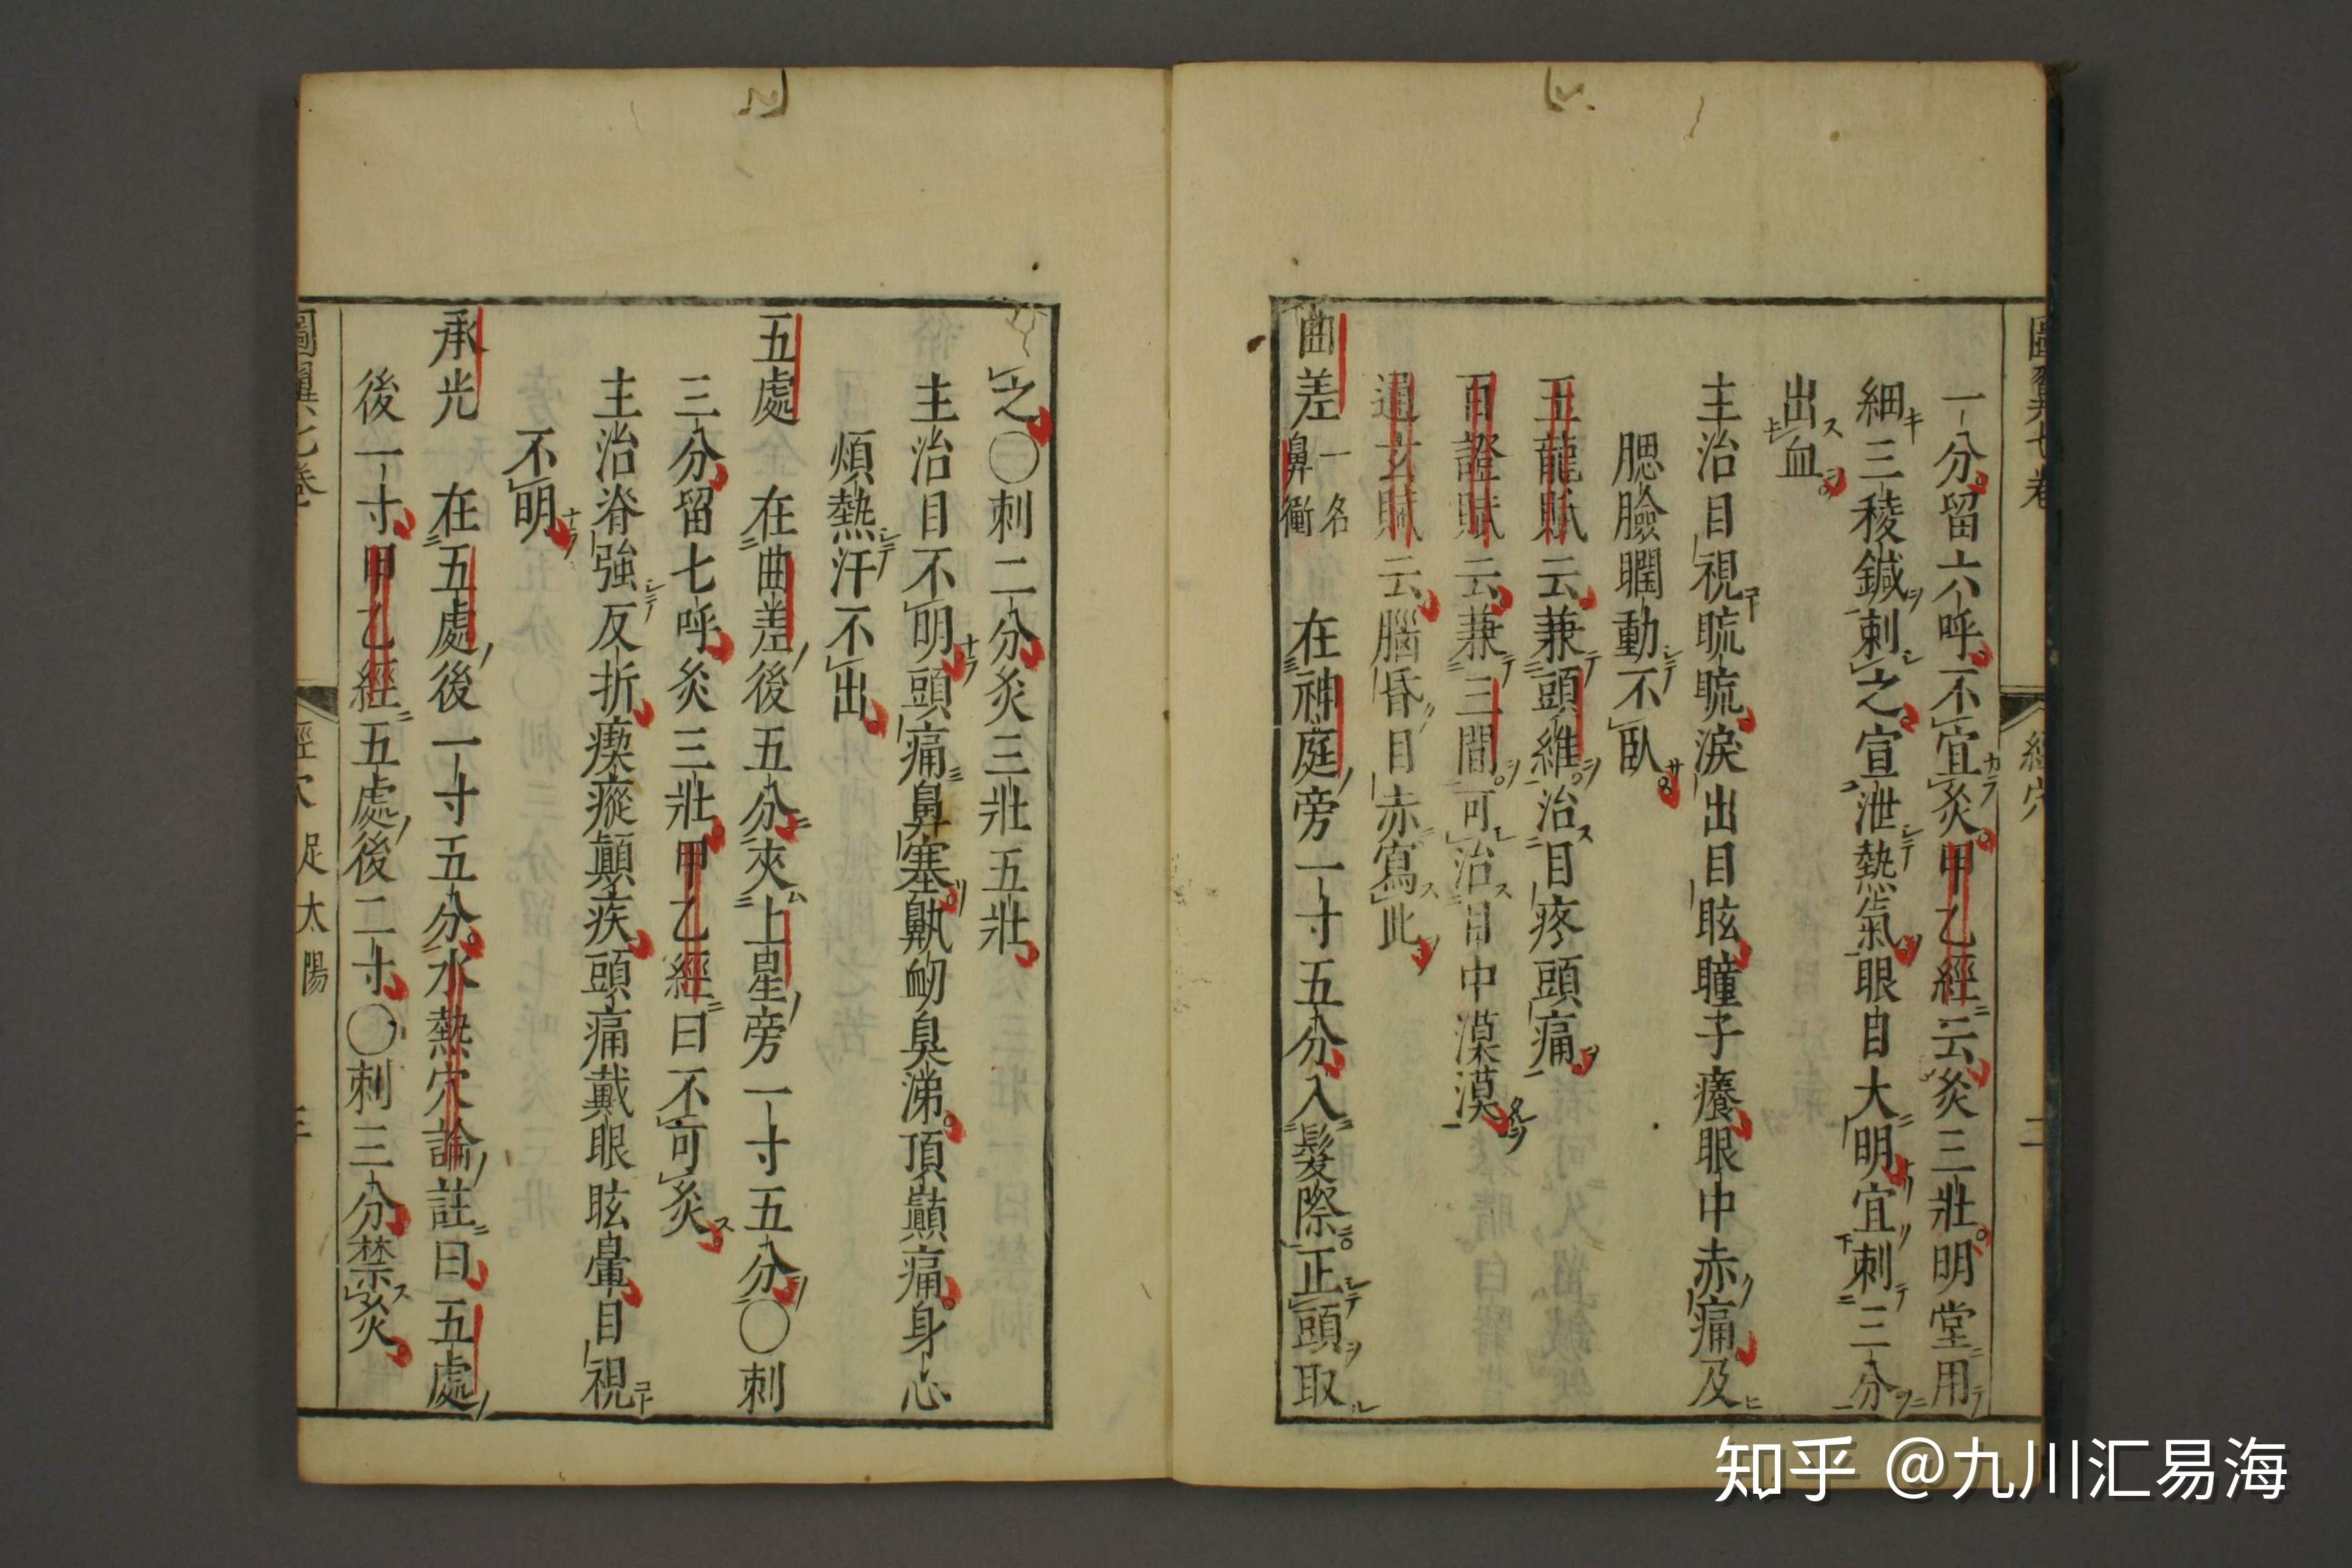 一分留六呼不宜灸甲乙經云灸三壯明堂用
細三稜鍼刺之宣泄熱氣眼目大明宜刺三分
出血
主治目視䀮䀮淚出目眩瞳子癢眼中赤痛及
腮臉瞤動不臥
玉龍賦云兼頭維治目疼頭痛
百證賦云兼三間可治目中漠漠
通玄賦云腦昏目赤瀉此
曲差 一名鼻衝 在神庭旁一寸五分入髮際正頭取
之〇刺二分灸三壯五壯
主治目不明頭痛鼻塞鼽衄臭涕頂巔痛身心
煩熱汗不出
五處 在曲差後五分夾上星旁一寸五分〇刺
三分留七呼灸三壯甲乙經曰不可灸
主治脊強反折瘈瘲顛疾頭痛戴眼眩暈目視
不明
承光 在五處後一寸五分水熱穴論註曰五處
後一寸甲乙經五處後二寸〇刺三分禁灸
圖翼七卷 經穴 足太陽 三
知乎 @九川汇易海